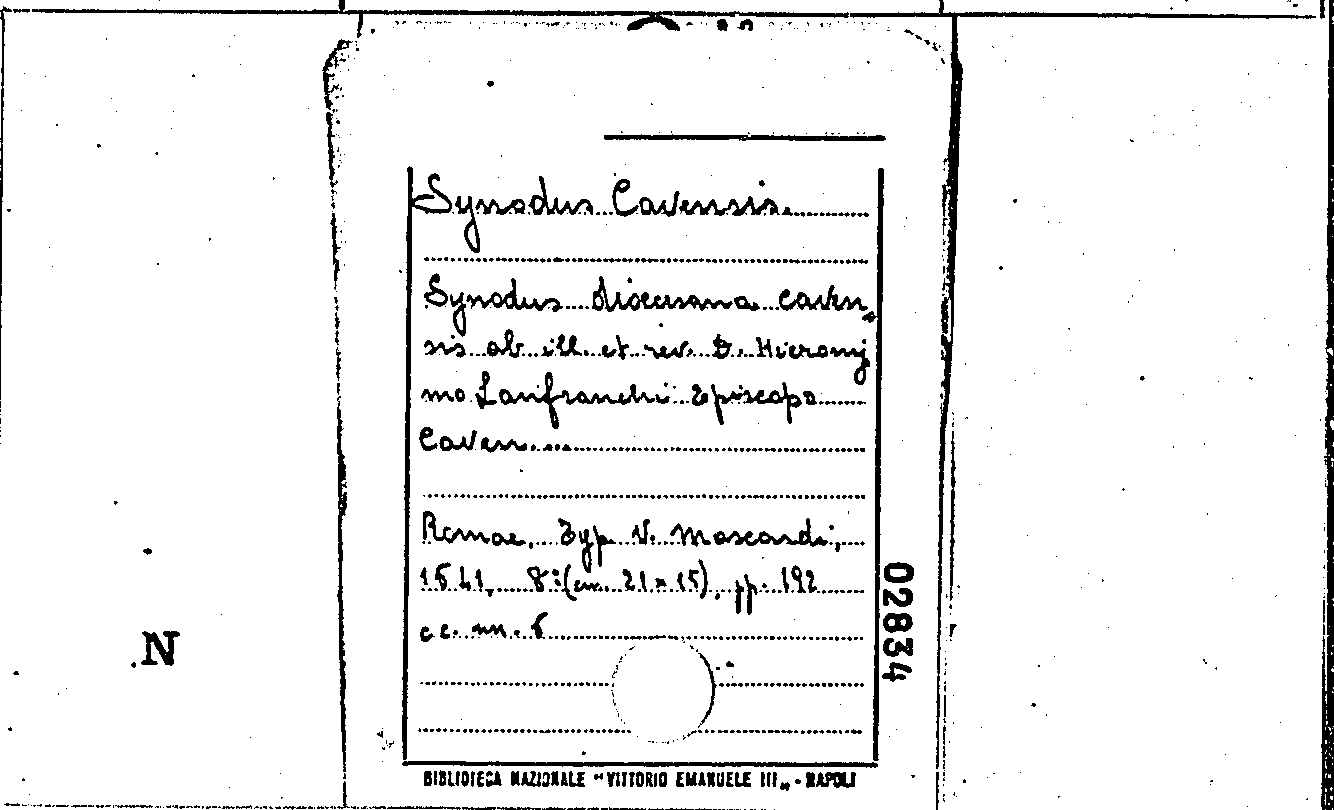 Synodus Cavensis.
Synodus dioecesana Caven„
sis ab ill. et rev. D. Hierony
mo Lanfranchi Episcopo
Caven....
Romae, Typ V. Mascardi,
1641, 8:(cm. 21×15), pp. 192
cc. nn. 6
02834
N
BIBLIOTECA NAZIONALE "VITTORIO EMANUELE III„ - NAPOLI